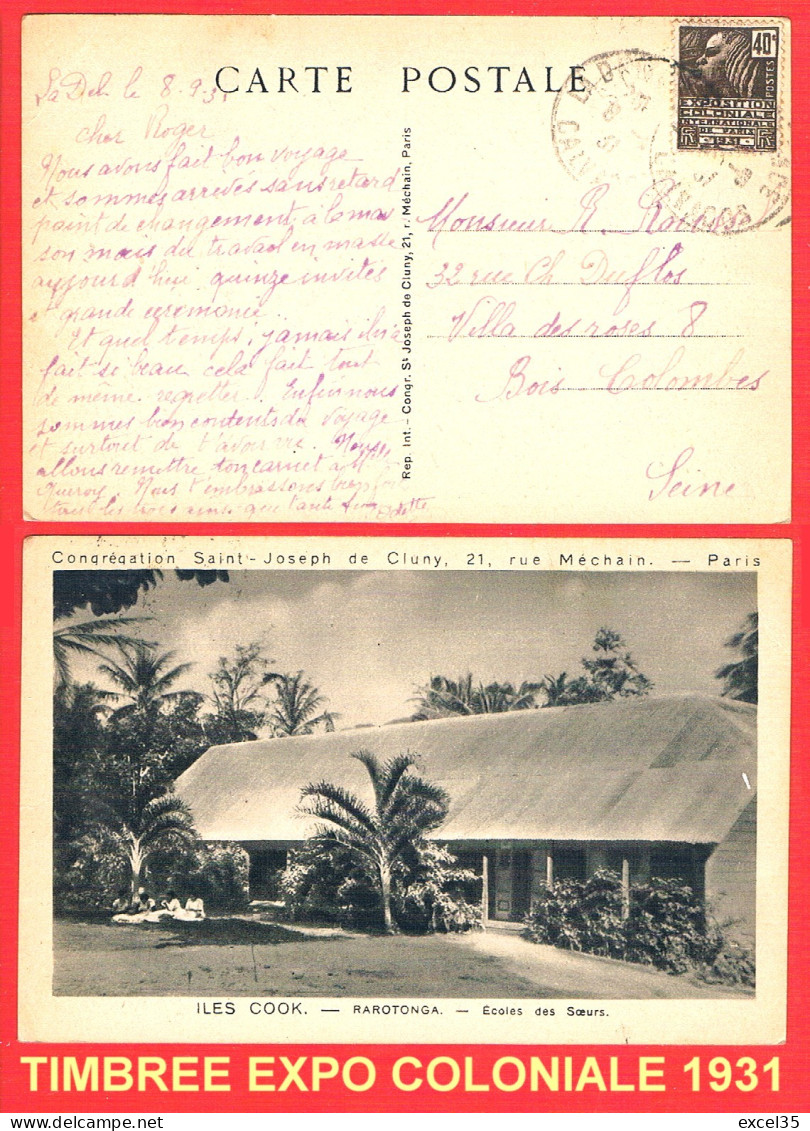 CARTE POSTALE
8-9-31
cher Roger
Nous avons fait bon voyage
et sommes arrivés sans retard
point de changement à la mai
son mais du travail en masse
aujourd'hui quinze invités
et grande ceromonie.
Et quel temps, jamais il n'a
fait si beau cela fait tout
de même regretter. Enfin nous
sommes bien contents du voyage
et surtout de t'avoir vu. Nous
allons remettre ton carnet à
Nous t'embrassons bien fort
tous les trois ainsi que tante
Odette
Rep. Int. - Congr. St Joseph de Cluny, 21, r. Méchain, Paris
40c
POSTES
EXPOSITION
COLONIALE
INTERNATIONALE
DE PARIS
1931
RF
Monsieur R.
32 rue Ch Duflos
Villa des roses 8
Bois Colombes
Seine
Congrégation Saint-Joseph de Cluny, 21, rue Méchain. — Paris
ILES COOK. — RAROTONGA. — Écoles des Sœurs.
TIMBREE EXPO COLONIALE 1931
delcampe.net
excel35